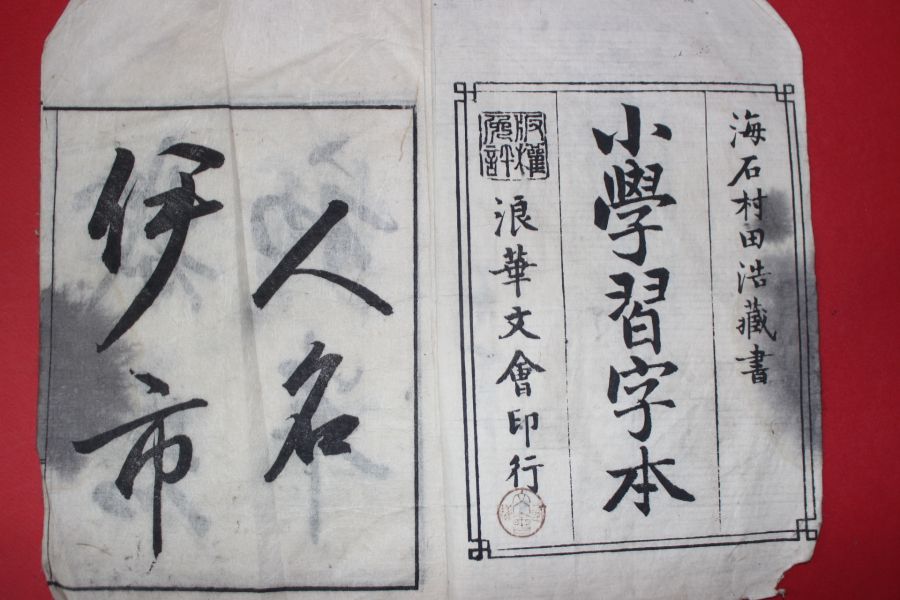 海石村田浩藏書
小學習字本
版權免許
浪華文會印行
人名
伊市